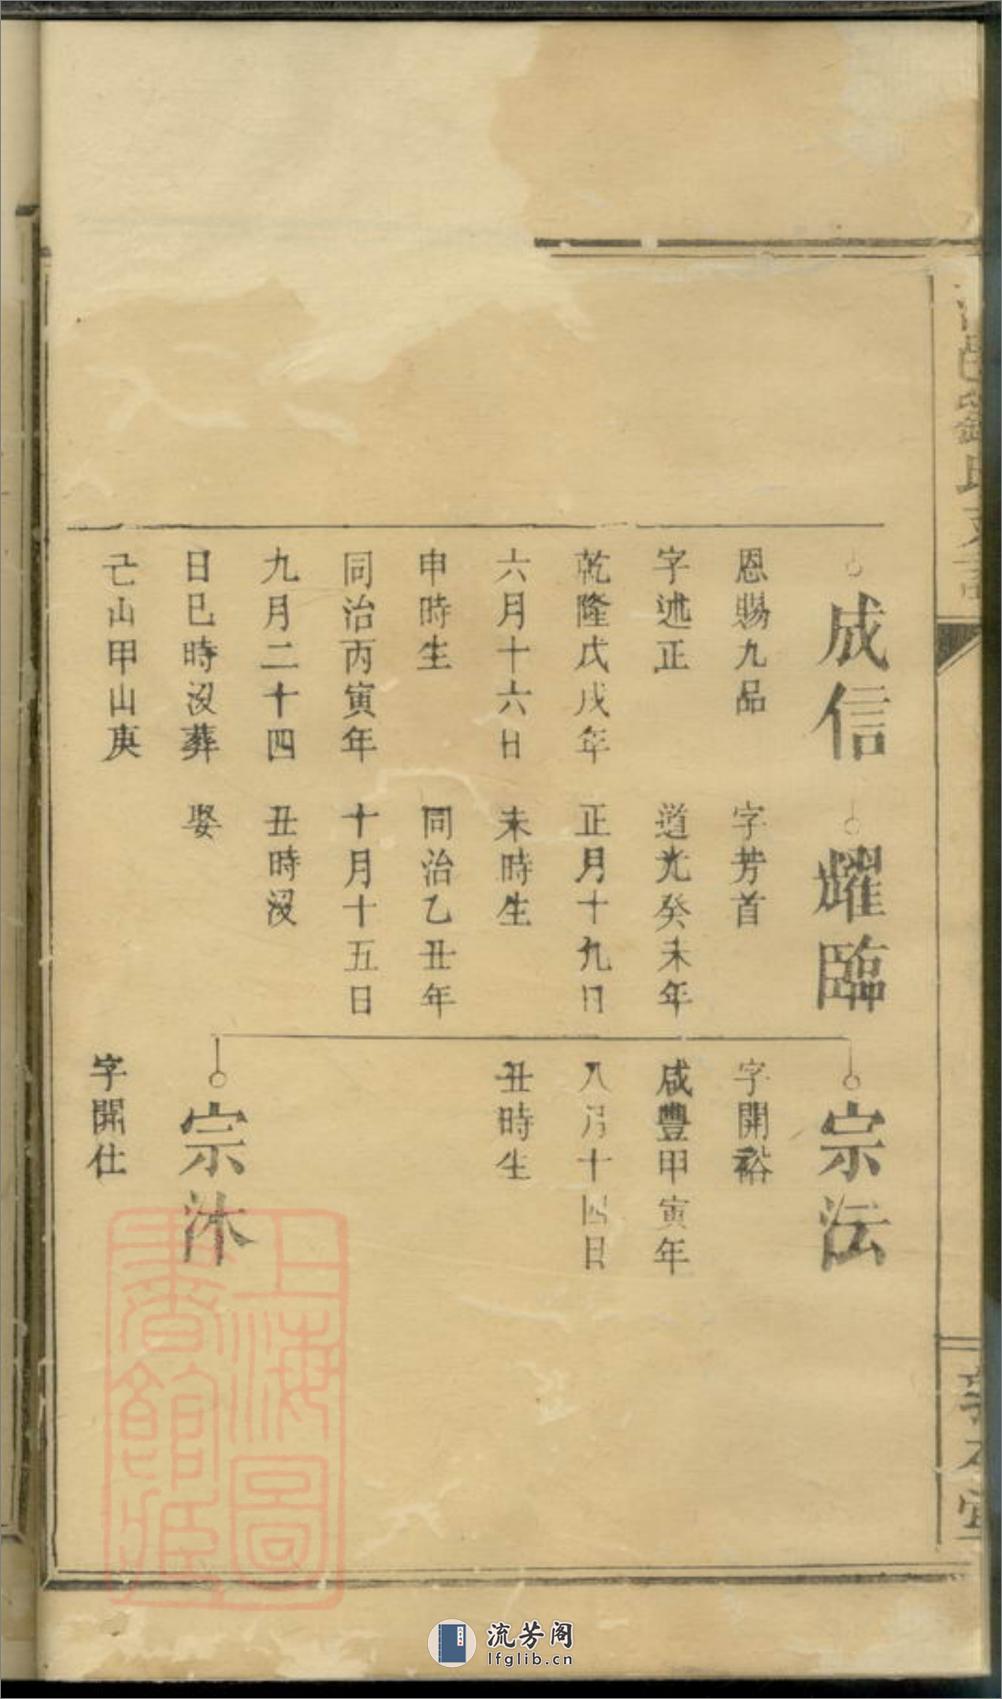 成信
恩賜九品
字述正
乾隆戊戌年
六月十六日
申時生
同治丙寅年
九月二十四
日巳時沒葬
亡山甲山庚
耀臨
字芳首
道光癸未年
正月十九日
未時生
同治乙丑年
十月十五日
丑時沒
娶
宗沄
字開裕
咸豐甲寅年
八月十四日
丑時生
宗沐
字開仕
上海圖
書館藏
流芳阁
lfglib.cn